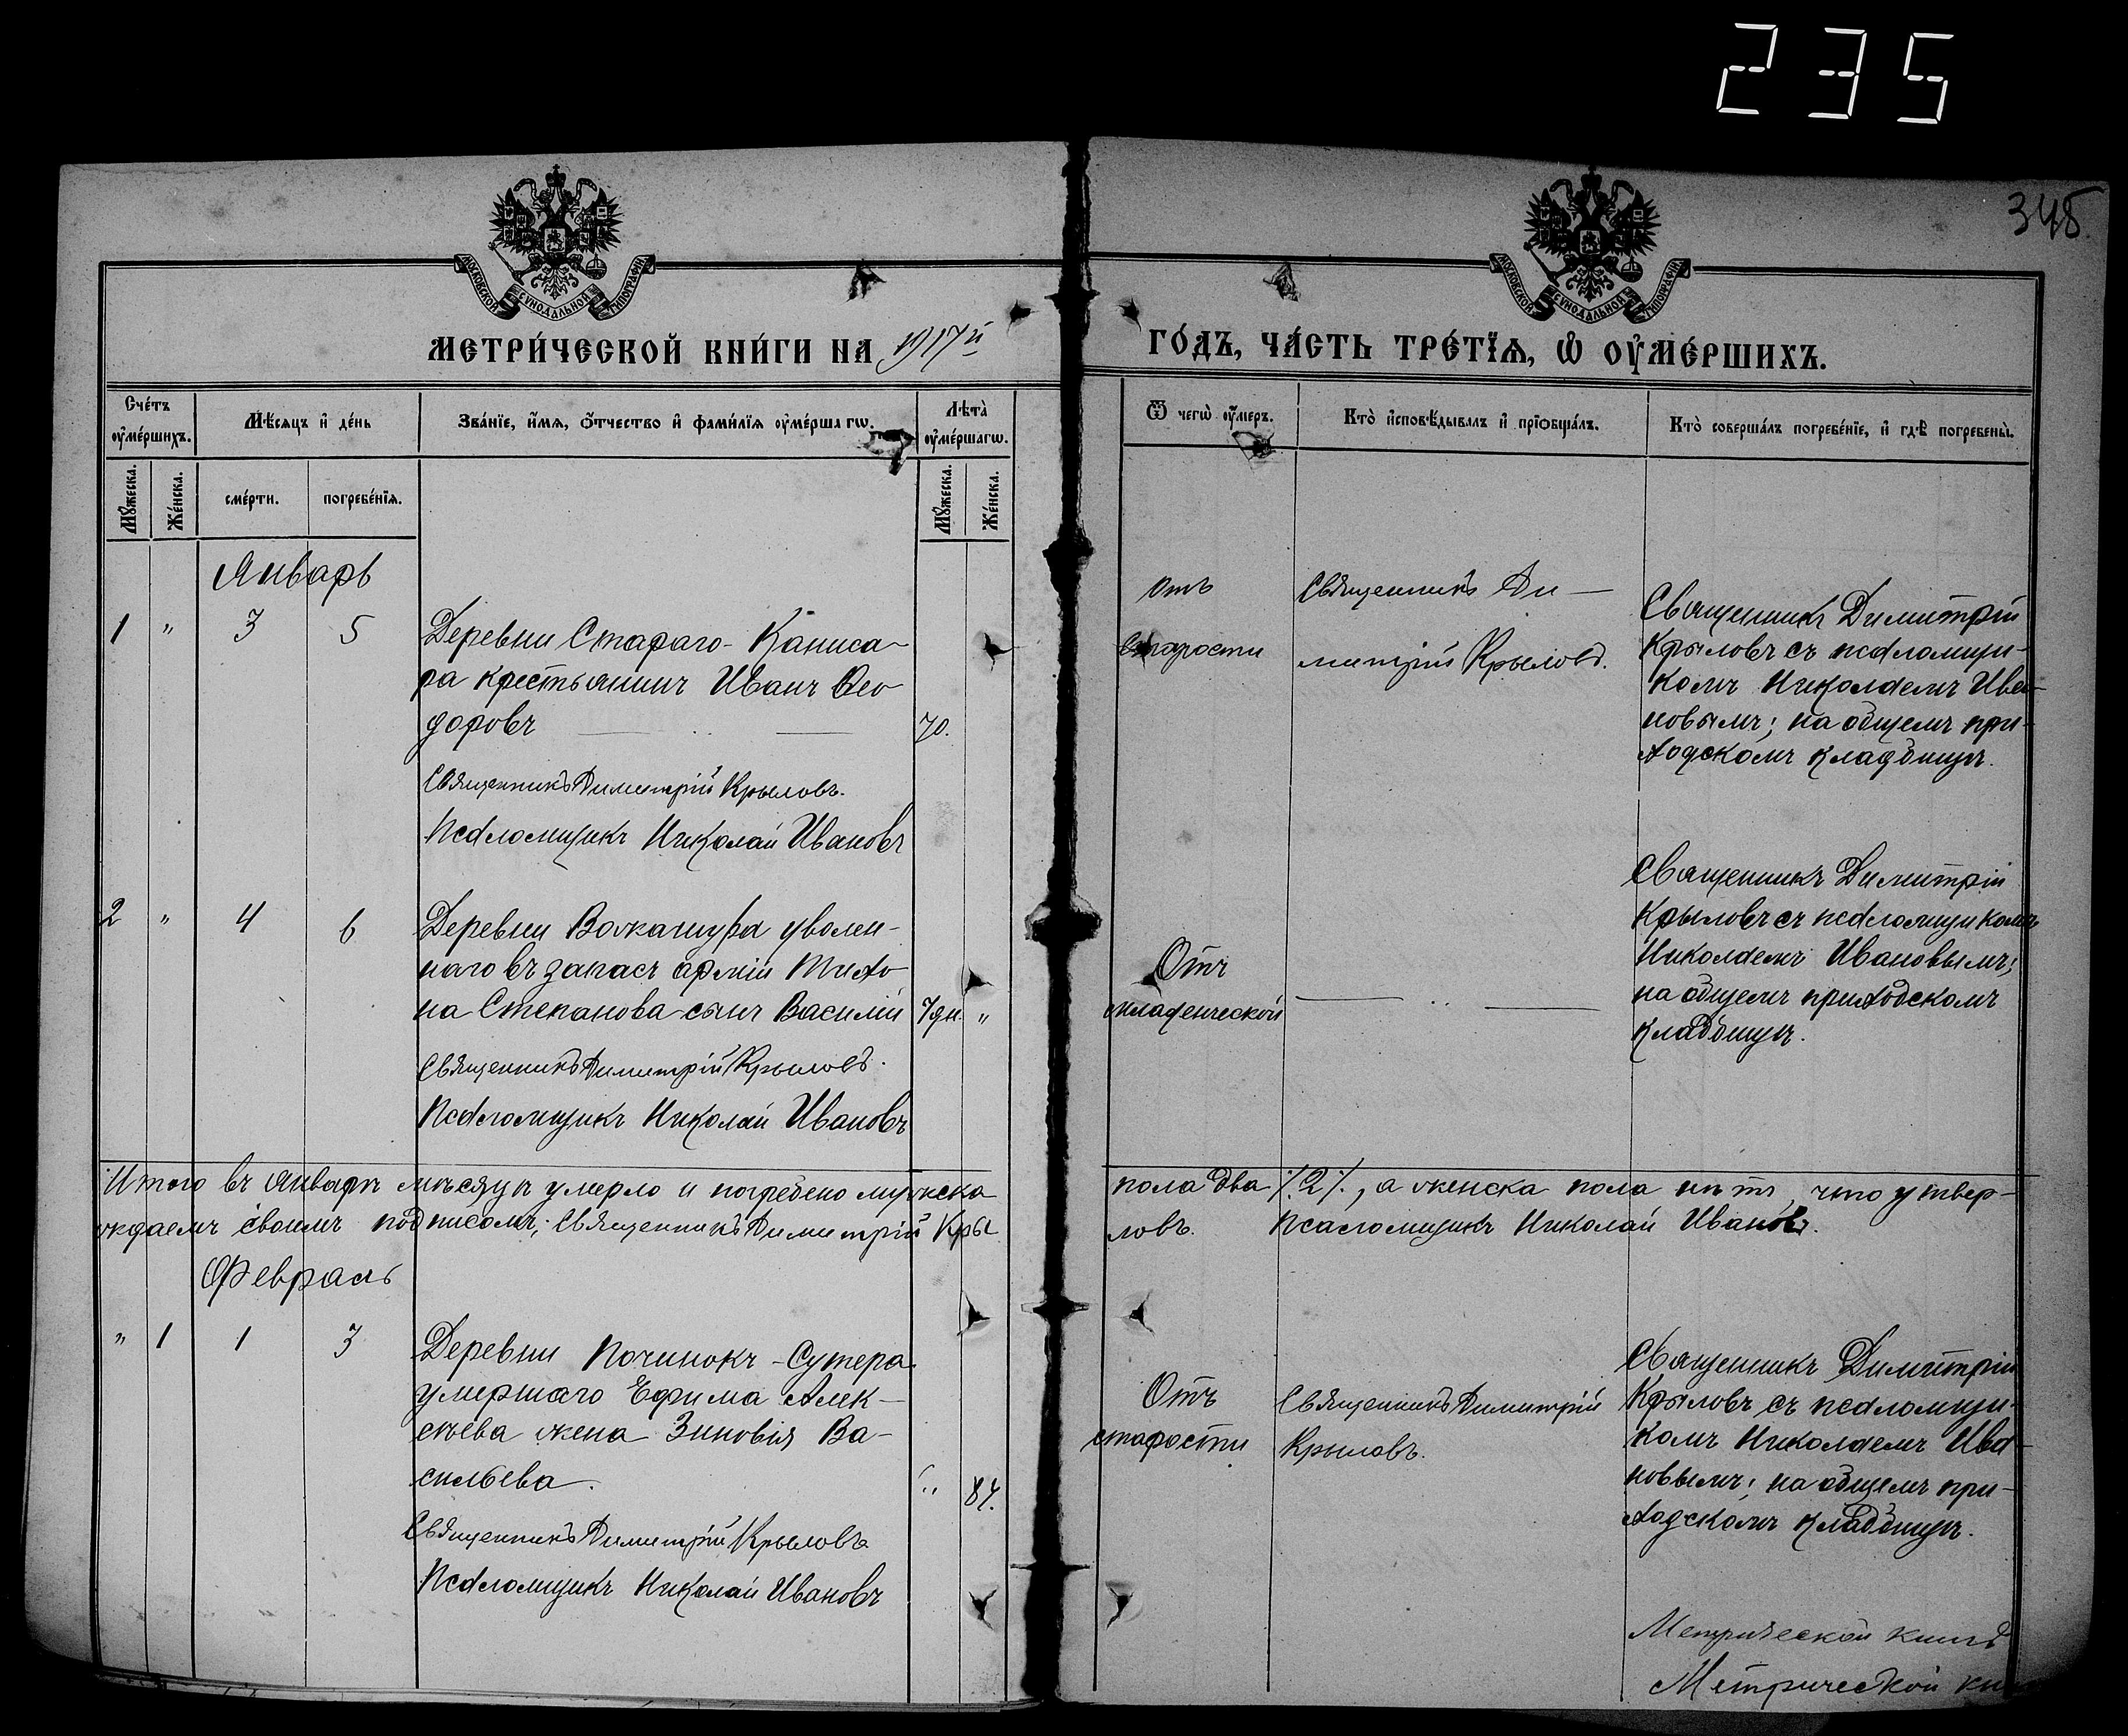 235
348
МОСКОВСКОЙ СѴНОДАЛЬНОЙ ТИПОГРАФІИ
МОСКОВСКОЙ СѴНОДАЛЬНОЙ ТИПОГРАФІИ
МЕТРИ́ЧЕСКОЙ КНИ́ГИ НА 1917й
ГО́ДЪ, ЧА́СТЬ ТРЕ́ТЇѦ, Ѽ ОУ҆МЕ́РШИХЪ.
Сче́тъ оу҆ме́ршихъ.
Мѣ́сѧцъ и҆ де́нь
Зва́нїе, и҆́мѧ, ѻ҆́тчество и҆ фами́лїѧ оу҆ме́ршагѡ.
Лѣ́та оу҆ме́ршагѡ.
Ѿ чегѡ̀ оу҆́меръ.
Кто̀ и҆сповѣ́дывалъ и҆ прїѡбща́лъ.
Кто̀ соверша́лъ погребе́нїе, и҆ гдѣ̀ погребены̀.
Мꙋ́жеска.
Же́нска.
сме́рти.
погребе́нїѧ.
Мꙋ́жеска.
Же́нска.
Январь
1 " 3 5
Деревни Стараго-Каниса-
ра крестьянинъ Иванъ Ѳео-
доровъ
70.
Священникъ Димитрій Крыловъ.
Псаломщикъ Николай Ивановъ
отъ
старости
Священникъ Ди-
митрій Крыловъ.
Священникъ Димитрій
Крыловъ съ псаломщи-
комъ Николаемъ Ива-
новымъ; на общемъ при-
ходскомъ кладбищѣ.
2 " 4 6
Деревни Вожкашура уволен-
наго въ запасъ арміи Тихо-
на Степанова сынъ Василій
7 дн. "
Священникъ Димитрій Крыловъ.
Псаломщикъ Николай Ивановъ
Отъ
младенческой
Священникъ Димитрій
Крыловъ съ псаломщикомъ
Николаемъ Ивановымъ;
на общемъ приходскомъ
кладбищѣ.
Итого въ Январѣ мѣсяцѣ умерло и погребено мужска
пола два /.2/., а женска пола нѣтъ, что утвер-
ждаемъ своимъ подписомъ; Священникъ Димитрій Кры
ловъ. Псаломщикъ Николай Ивановъ.
Февраль
" 1 1 3
Деревни Починокъ-Сутера
умершаго Ефима Алек-
сѣева жена Зиновія Ва-
сильева.
" 84.
Священникъ Димитрій Крыловъ
Псаломщикъ Николай Ивановъ
Отъ
старости
Священникъ Димитрій
Крыловъ.
Священникъ Димитрій
Крыловъ съ псаломщи-
комъ Николаемъ Ива-
новымъ; на общемъ при-
ходскомъ кладбищѣ.
Метрической
Метрической